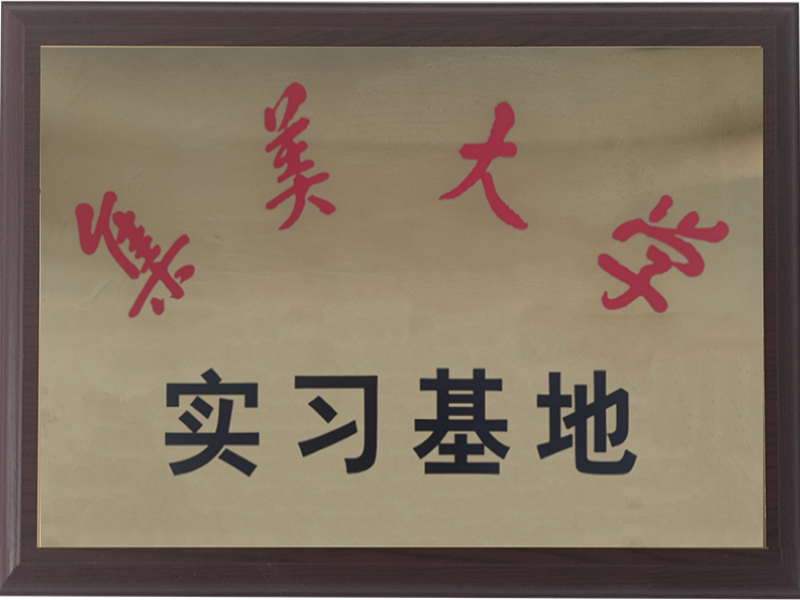 集美大学
实习基地